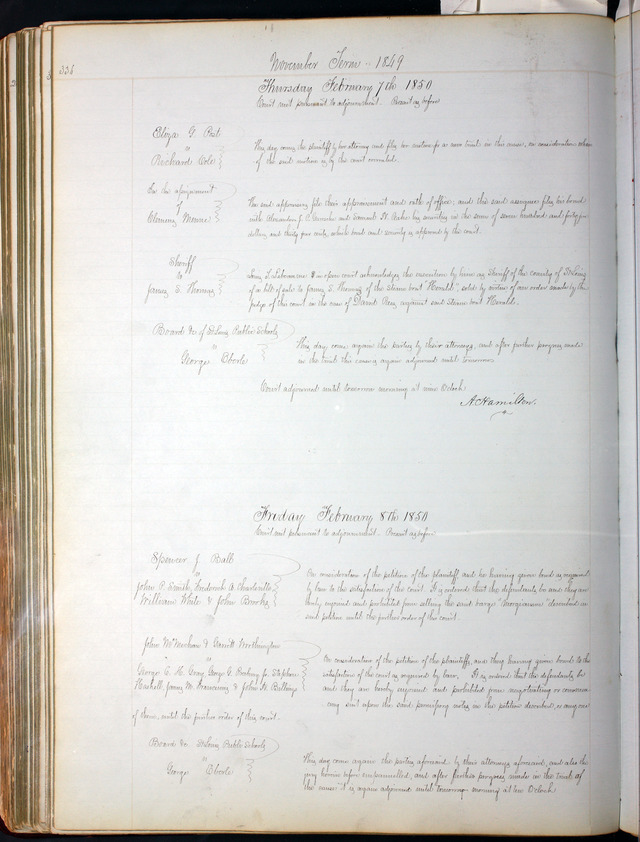 336
November Term - 1849
Thursday February 7th 1850
Court met pursuant to adjournment. Present as before
Eliza G. Post
vs
Richard Cole
This day comes the plaintiff by her attorney and files her motion for a new trial in this cause, on consideration whereof
of the said motion is by the court overruled.
In the assignment
of
Clemency Monroe
The said appraisers file their appraisement and oath of office; and the said assignee files his bond
with Alexander J. P. and Samuel H. as security in the sum of seven hundred and forty four
dollars and thirty five cents, which bond and security is approved by the court.
Sheriff
to
James S. Thomas
Louis T. Labeaume in open court acknowledges the execution by him as Sheriff of the county of St Louis
of a bill of sale to James S. Thomas of the steam boat "Herald", sold by virtue of an order made by the
judge of this court in the case of Daniel against said Steam boat Herald.
Board &c of St Louis Public Schools
vs
George Eberle
This day come again the parties by their attorneys, and after further progress made
in the trial this cause is again adjourned until tomorrow.
Court adjourned until tomorrow morning at nine O'clock.
A. Hamilton.
Friday February 8th 1850
Court met pursuant to adjournment. Present as before
Spencer J. Ball
vs
John P. Smith, Frederick A. Charleville
William White & John Brooks
On consideration of the petition of the plaintiff and he having given bond as required
by law to the satisfaction of the court. It is ordered that the defendants be and they are
hereby enjoined and prohibited from selling the said barge "Georgianna" described in
said petition until the further order of this court.
John & Garritt Worthington
vs
George C. H. Gray, George G. jr Stephen
Haskell, James M. & John H. Billings
On consideration of the petition of the plaintiffs, and they having given bond to the
satisfaction of the court as required by law, It is ordered that the defendants be
and they are hereby enjoined and prohibited from negotiating or commenc-
ing suit upon the said promissory notes in the petition described, or any one
of them, until the further order of this court.
Board &c St Louis Public Schools
vs
George Eberle
This day come again the parties aforesaid by their attorneys aforesaid, and also the
jury herein before empannelled, and after further progress made in the trial of
the cause; it is again adjourned until tomorrow morning at ten O'clock.